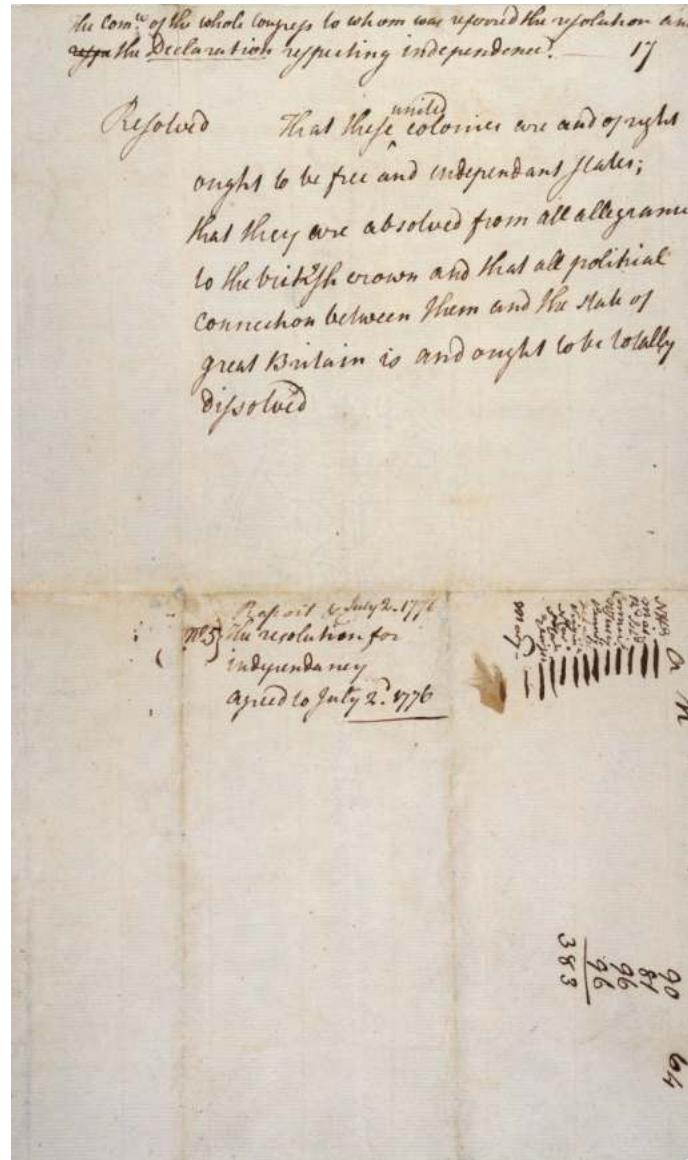 The Com.ee of the whole Congress to whom was referred the resolution and
the Declaration respecting independence. — 17
Resolved That these united colonies are and of right
ought to be free and independant states;
that they are absolved from all allegiance
to the british crown and that all political
connection between them and the state of
great Britain is and ought to be totally
dissolved
Report July 2. 1776
No. 5} the resolution for
independancy
agreed to July 2.d 1776
90
81
96
96
383
64